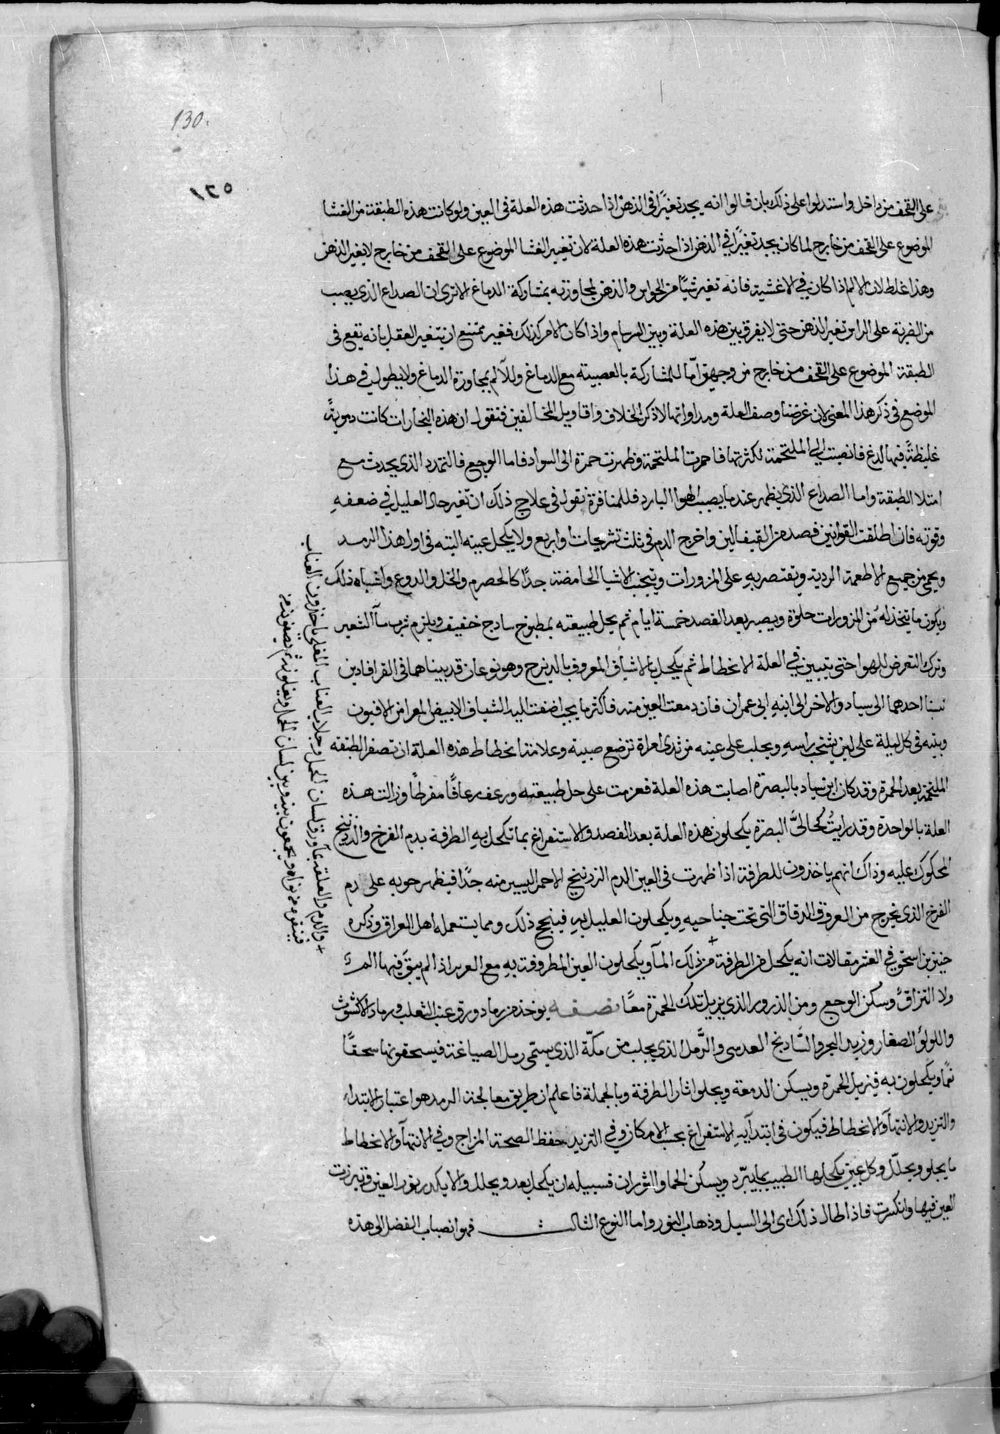 130
١٢٥
على القحف من داخل واستدلوا على ذلك بان قالوا انه يجد تغيرا في الذهن اذا حدثت هذه العلة في العين ولو كانت هذه الطبقة من الغشا
الموضوع على القحف من خارج لما كان يجد تغيرا في الذهن اذا حدثت هذه العلة لان تغير الغشا الموضوع على القحف من خارج لا يغير الذهن
وهذا غلط لان الالم اذا كان في الاغشية فانه تغير شيا من الحواس والذهن لمجاورته بمشاركة الدماغ الا ترى ان الصداع الذي يصيب
من الضربة على الراس تغير الذهن حتى لا يفرق بين هذه العلة وبين السرسام واذا كان الامر كذلك فغير ممتنع ان يتغير العقل بانه يقع في
الطبقة الموضوع على القحف من خارج من وجهين اما للمشاركة بالعصبية مع الدماغ وللالم بمجاورة الدماغ ولا يطول في هذا
الموضع في ذكر هذا المعنى لان غرضنا وصف العلة ومداواتها لا ذكر الخلاف واقاويل المخالفين فنقول ان هذه البخارات كانت دموية
غليظة فيها لدغ فانصبت الى الملتحمة لكثرتها فاحمرت الملتحمة وظهرت حمرة الى السواد فاما الوجع فالتمدد الذي يحدث مع
امتلا الطبقة واما الصداع الذي يظهر عندما يصيب الهوا البارد فللمنافرة نقول في علاج ذلك ان تغير حال العليل في ضعفه
وقوته فان اطلقت القوانين فصد من القيفالين واخرج الدم في ثلث تشريحات او اربع ولا يكحل عينه البته في اول هذا الرمد
ويحمى من جميع الاطعمة الردية ويقتصر به على المزورات ويتجنب الاشيا الحامضة جدا كالحصرم والخل والدوغ واشباه ذلك
ويكون ما يتخذ له من المزورات حلوة ويصبر بعد الفصد خمسة ايام ثم يحل طبيعته بمطبوخ ساذج خفيف ويلزم شرب ماء الشعير
وترك التعرض للهوا حتى يتبين في العلة الانحطاط ثم يكحل بالاشياف المعروف بالديزج وهو نوعان قد بيناهما في القرافادين
نسبنا احدهما الى سياد والاخر الى ابنه ابي عمران فان دمعت العين منه فأكثر ما يجب اضفت اليه الشياف الابيض المعرا من الافيون
وبنيه في كل ليلة على لبن يشتحب راسه ويحلب على عينه من ثدي امراة ترضع صبية وعلامة انحطاط هذه العلة ان تصفر الطبقة
الملتحمة بعد الحمرة وقد كان ابن سياد بالبصرة اصابت هذه العلة فعزمت على حل طبيعته ورعف رعافا مفرطا وزالت هذه
العلة بالواحدة وقد رايت كحالي البصرة يكحلون هذه العلة بعد الفصد والاستفراغ بما تكحل به الطرفة بدم الفرخ والزرنيخ
المحكوك عليه وذاك انهم ياخذون للطرفة اذا ظهرت في العين الدم الزرنيخ الاحمر اليسير منه جدا فيظهر حوبه على دم
الفرخ الذي يخرج من العروق الدقاق التي تحت جناحيه ويكحلون العليل به فينجح ذلك ومما يستعمله اهل العراق وذكره
حنين بن اسحق في العشر مقالات انه يكحل من الطرفة من ذلك الماء ويكحلون العين المطروفة به مع العرير اذا لم يبق فيها الم
ولا التزاق وسكن الوجع ومن الذرور الذي يزيل تلك الحمرة معا نصفه يوخذ من رماد ورق عنب الثعلب ورماد الاكشوث
واللولؤ الصغار وزبد البحر والشاذنج العدسي والرمل الذي يجلب من مكة الذي يسمى رمل الصياغة فيسحقونها سحقا
تما ويكحلون به فيزيل الحمرة ويسكن الدمعة ويجلوا اثار الطرفة وبالجملة فاعلم ان طريق معالجة الرمد هو اعتبار الابتداء
والتزيد والانتهاء والانحطاط فيكون في ابتدائه الاستفراغ بحسب الامكان وفي التزيد حفظ الصحة المزاج وفي الانتهاء والانحطاط
ما يجلو ويحلل وكل عين يكحلها الطبيب بما يبرد ويسكن الحما والثوران فسبيله ان يكحل بعد ويحلل والا يكدر نور العين وتبرزت
العين فيها وانكسرت فاذا طال ذلك ادى الى السبل وذهاب النور واما النوع الثالث فهو انصباب الفضل الى هذه
والدم والعلقة بماء ورق لسان الحمل وجلاب العناب المغلى ياخذون العناب
فينقوه من نواه ويجمعون بينه وبين لسان الحمل ويغلونه ثم يصفونه من